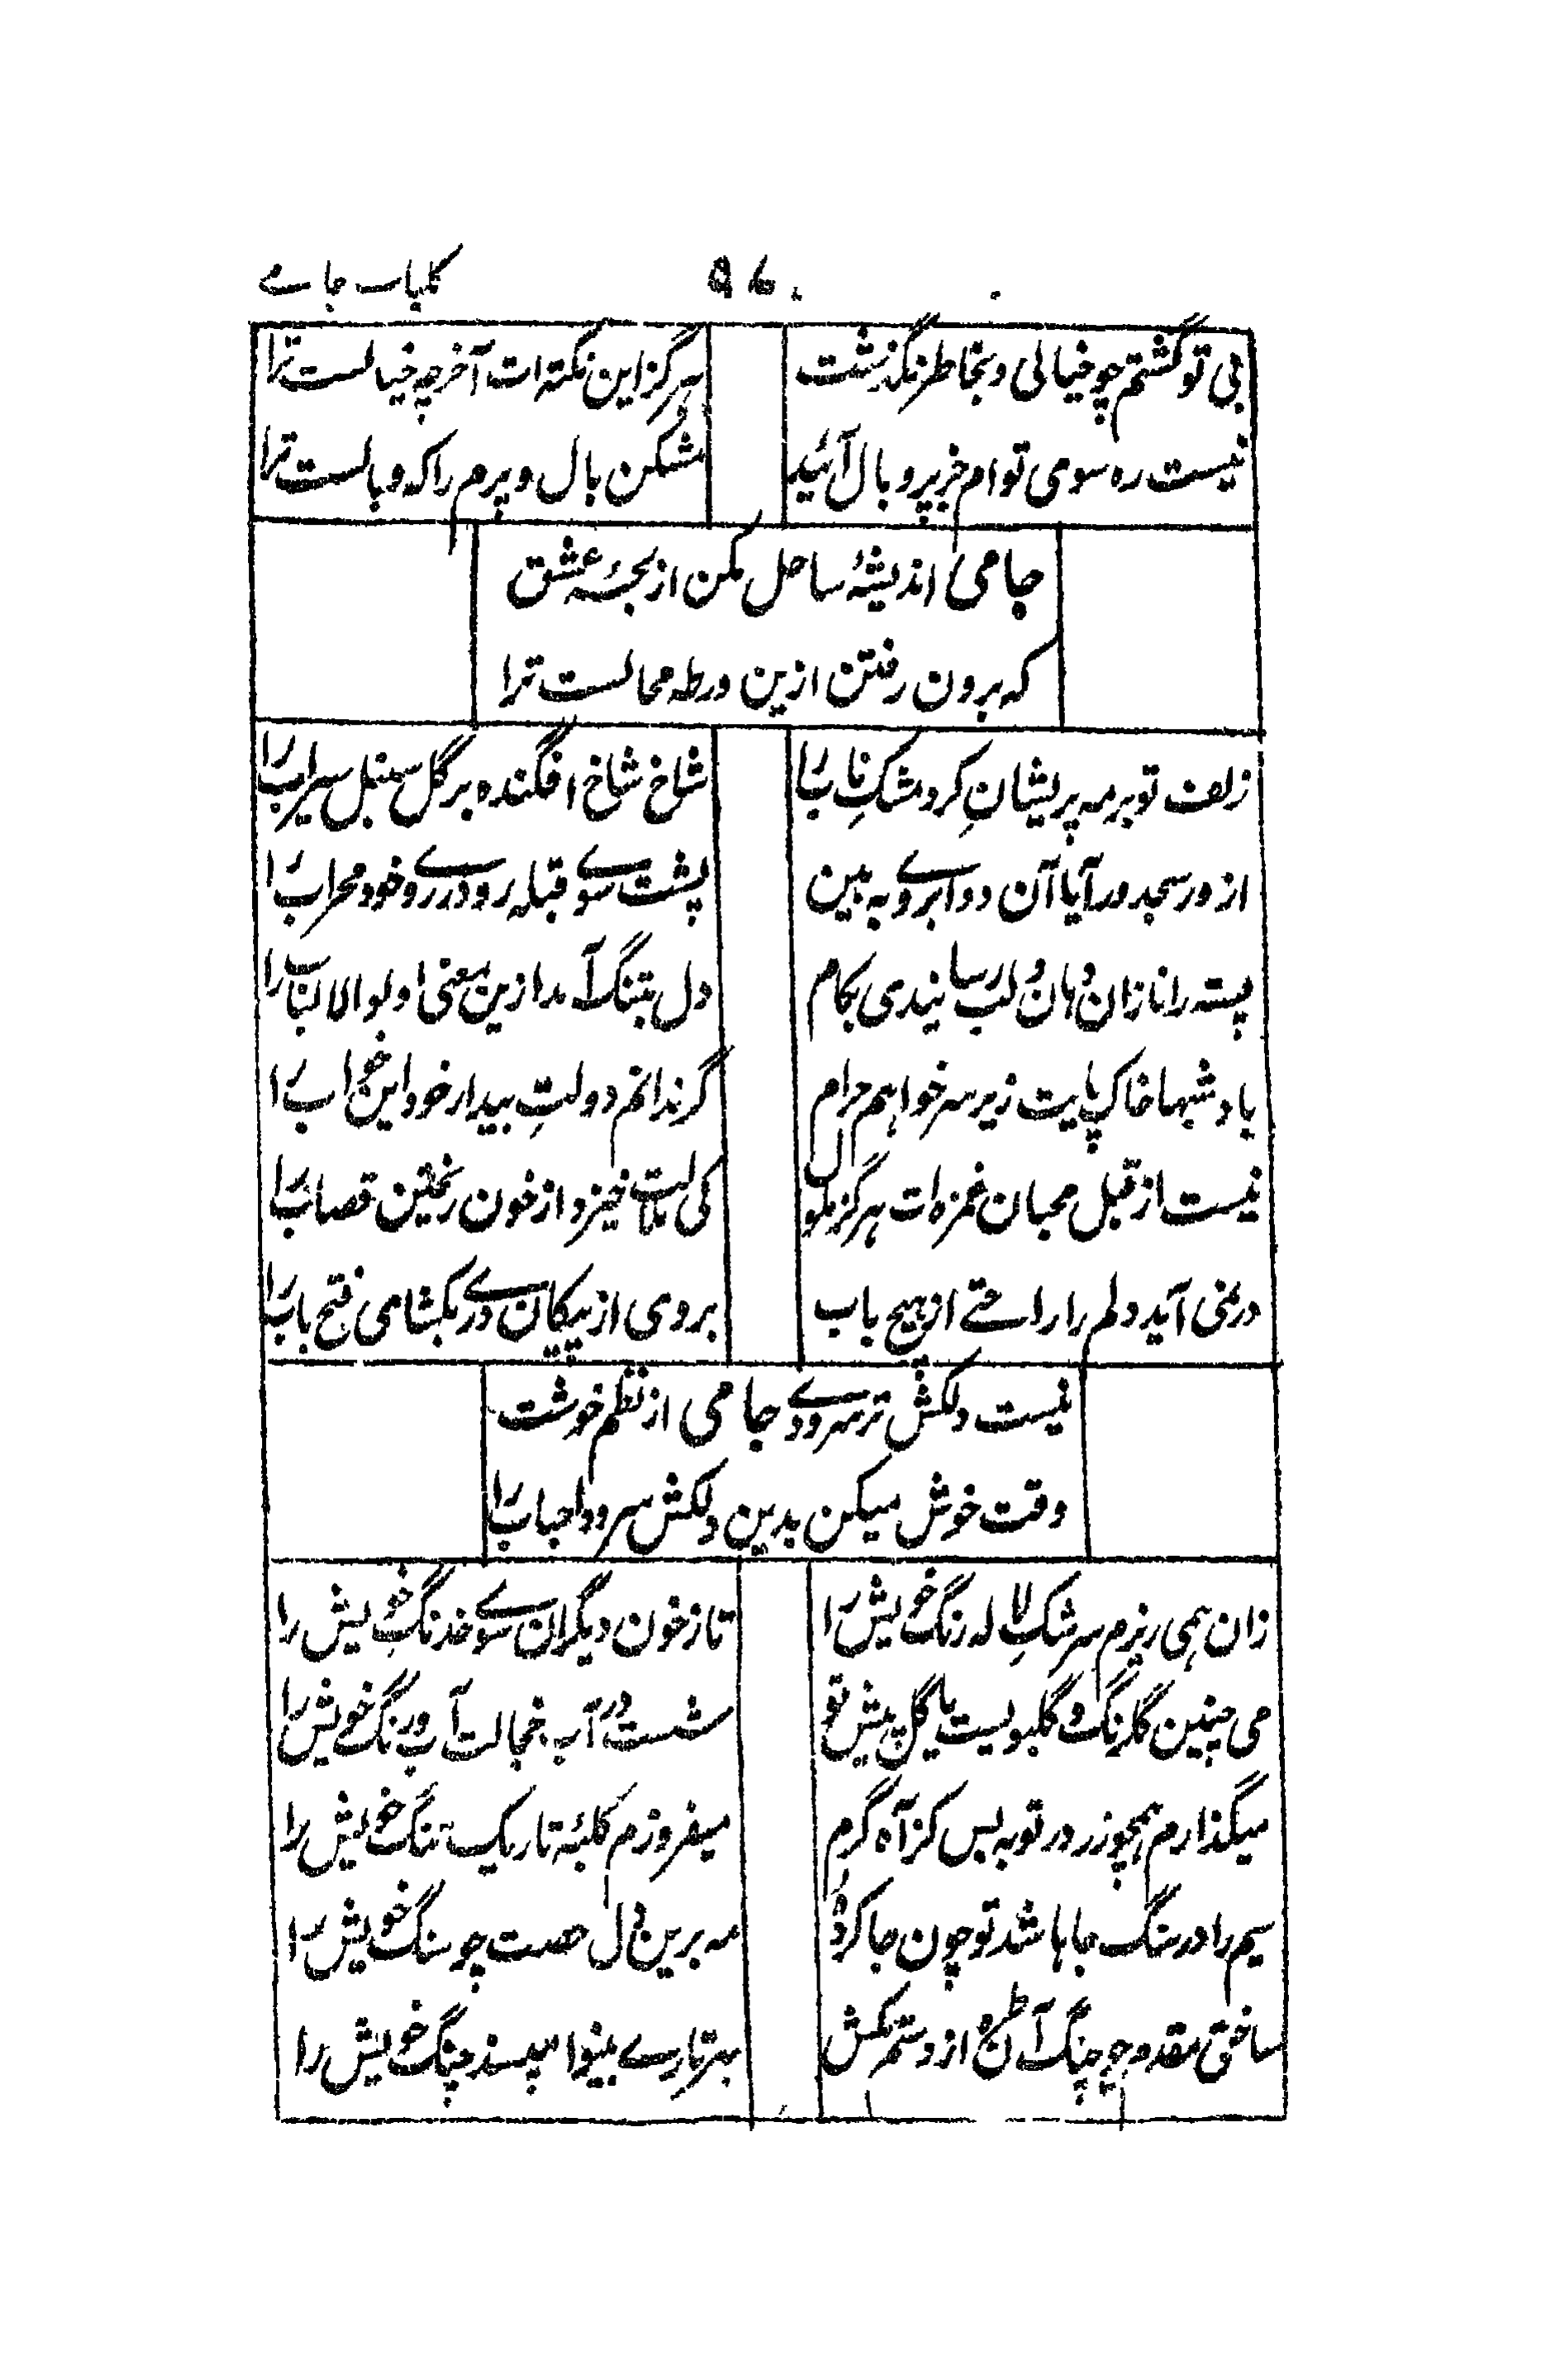 کلیات جامے
۹۶
بی تو گشتم چو خیالی و بخاطر نگذشت
ہرگز این نکتہ ات آخر چہ خیالست ترا
نیست رہ سوی توام جز بپر و بال آئید
مشکن بال و پرم را کہ وبالست ترا
جامی اندیشۂ ساحل مکن از لجۂ عشق
کہ برون رفتن ازین ورطہ محالست ترا
زلف تو بر مہ پریشانِ کرد مشکِ ناب را
شاخ شاخ افگندہ بر گل سنبل سیراب را
از در مسجد در آیا آن دو ابروے بہ بین
پشت سوے قبلہ رو در روے خود محراب را
پستہ را نا زان دہان و لب رسانیدی بکام
دل بتنگ آمد ازین معنی اولو الالباب را
باد شبها خاک پایت زیر سر خوابم حرام
گر ندانم دولتِ بیدار خود این خواب را
نیست از قتل محبان غمزہ ات ہرگز ملول
کی ملالت خیزد از خون ریختن قصاب را
در نمی آید دلم را راحتے از ہیچ باب
بر وی از پیکان درے بکشامی فتح باب را
نیست دلکش تر سرودے جامی از نظم خوشت
وقت خوش میکن بدین دلکش سرود احباب را
زان ہمی ریزم سرشکِ لالہ رنگ خویش را
تا ز خون دیگران سوے خدنگِ خویش را
می چنین گلرنگ و گلبویست یا گل پیش تو
شست در آب خجالت آب و رنگ خویش را
میگذارم ہمچو زر در توبہ بس کز آہ گرم
میفروزم کلبۂ تاریک تنگ خویش را
سیم را در سنگ جا باشد تو چون جا کردۂ
مہ برین دل حصت چو سنگ خویش را
ساختی مقدم چو چنگ آن طرۂ از دستم مکش
بہر تارے بینوا مپسند چنگ خویش را